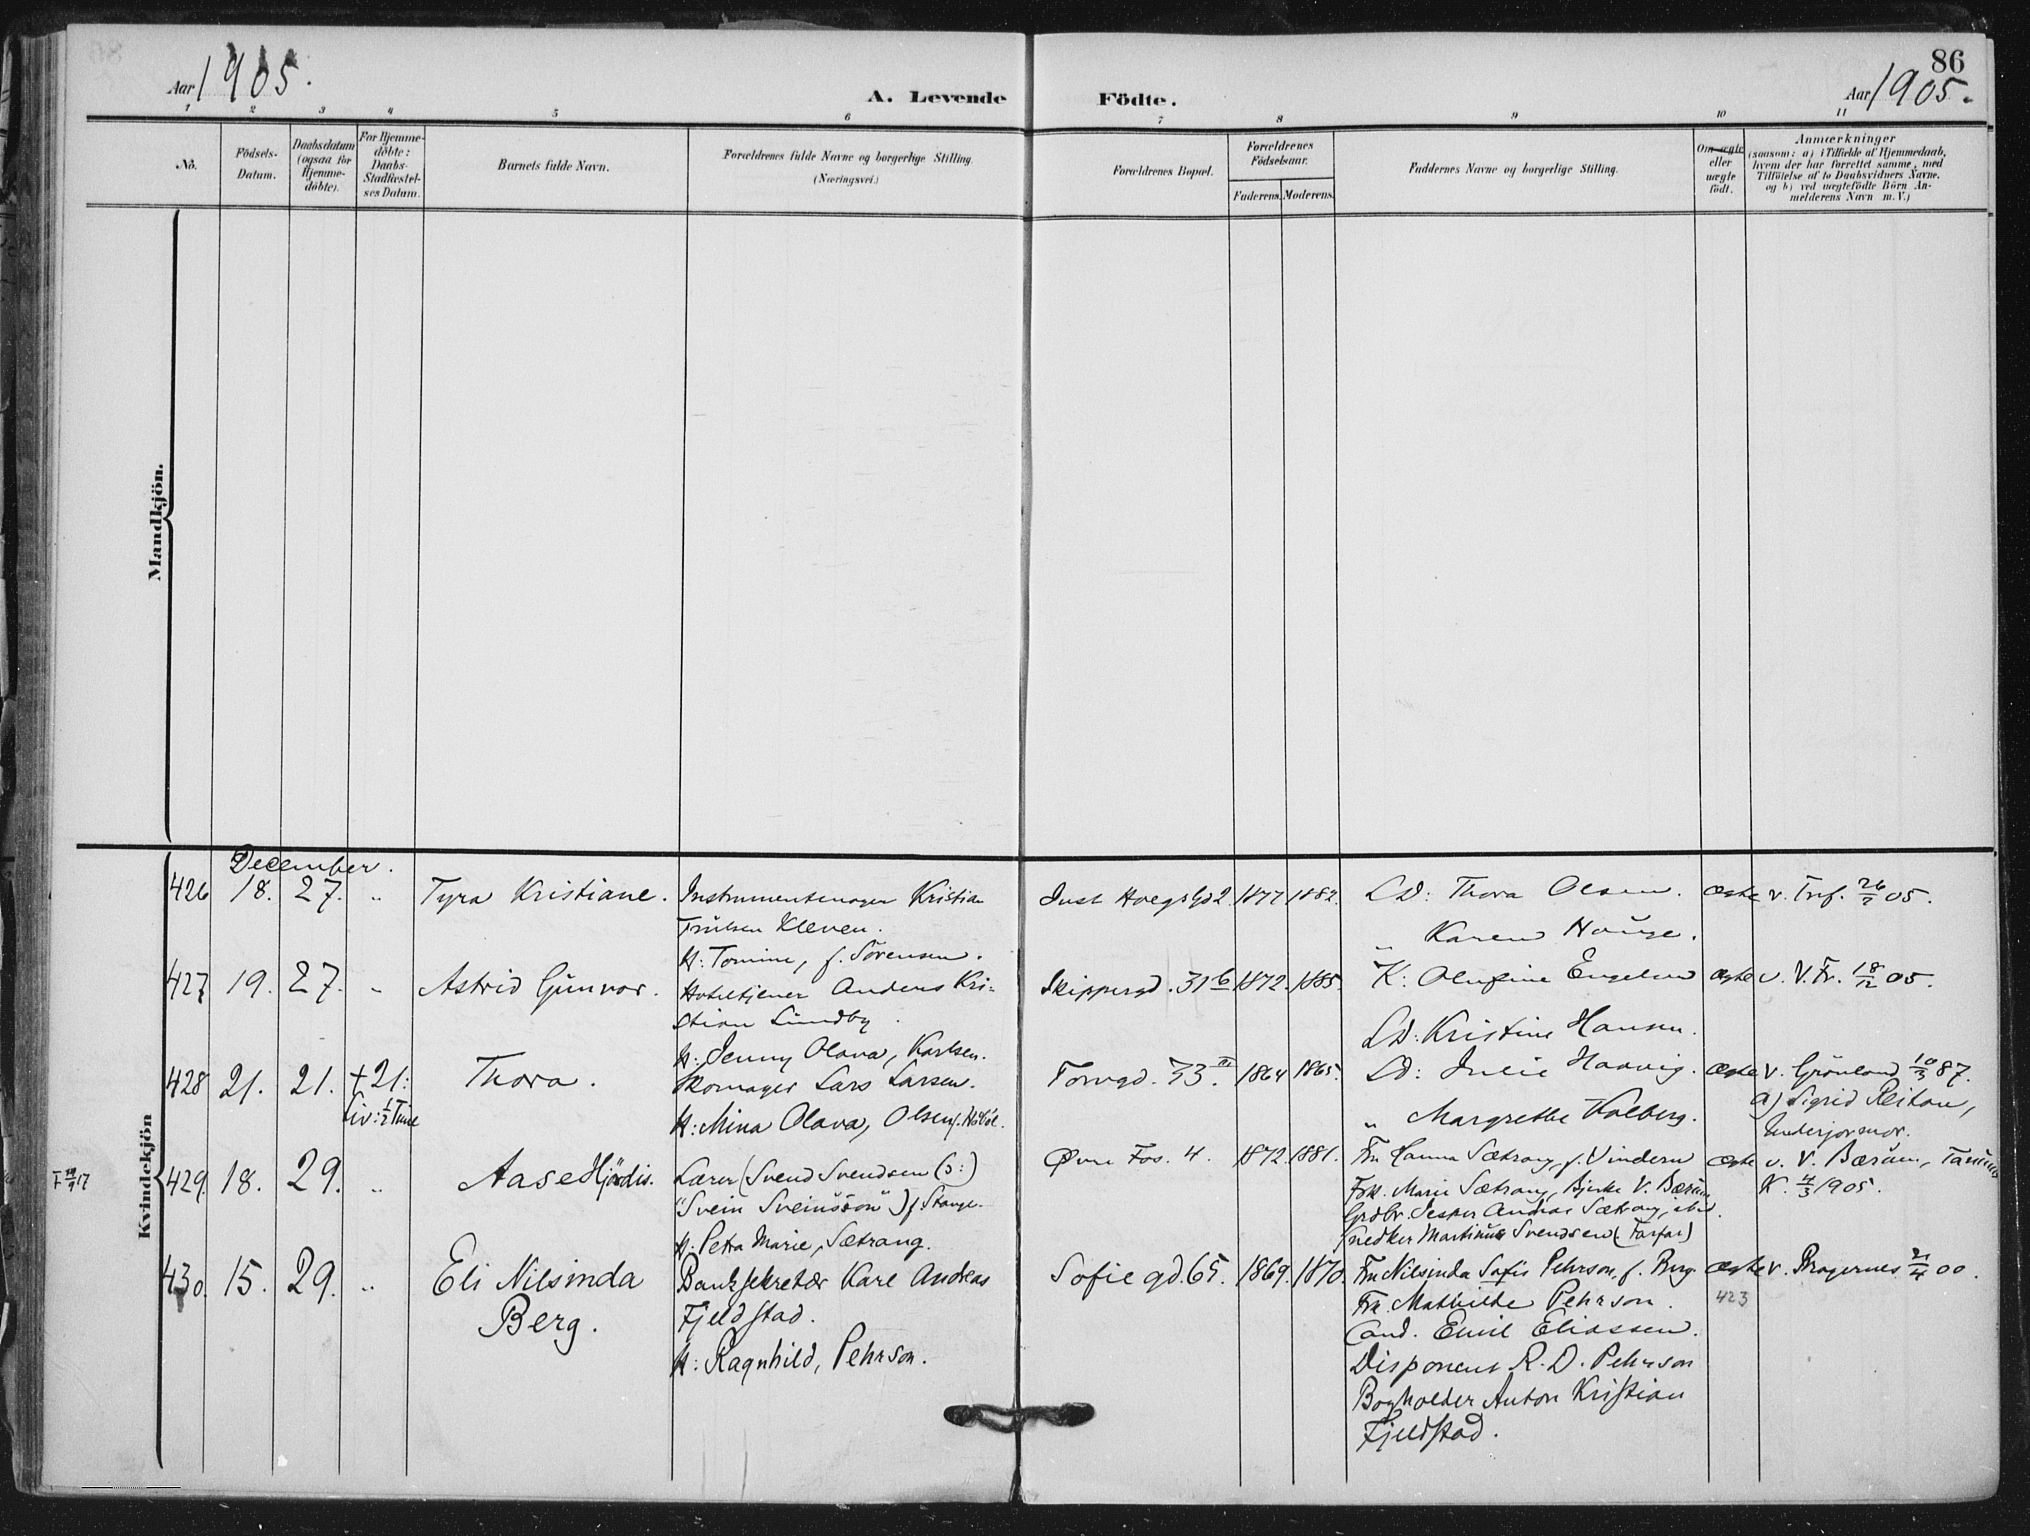 86
Aar 1905.
A. Levende Födte.
Aar 1905.
1 2 3 4 5 6 7 8 9 10 11
No.
Födsels-Datum.
Daabsdatum (ogsaa for Hjemme-döbte).
For Hjemme-döbte: Daabs-Stadfæstel-ses Datum.
Barnets fulde Navn.
Forældrenes fulde Navne og borgerlige Stilling. (Næringsvei.)
Forældrenes Bopæl.
Forældrenes Födselsaar.
Faderens. Moderens.
Faddernes Navne og borgerlige Stilling.
Om ægte eller uægte födt.
Anmærkninger
(saasom: a) i Tilfælde af Hjemmedaab, hvem der har forrettet samme, med Tilföielse af to Daabsvidners Navne, og b) ved uægtefödte Börn An-melderens Navn m. V.)
Mandkjön.
Kvindekjön
December.
426 18. 27. " Tyra Kristiane.
Instrumentmager Kristian
Trulsen Kleven.
H: Tomine, f. Sörensen.
Just Hoegsgd 2 1877 1882.
LD: Thora Olsen.
" Karen Hauge.
Ægte v. Tref. 26/ 05.
427 19. 27. " Astrid Gunvor.
Hoteltjener Anders Kri-
stian Lundby.
H: Jenny Olava, Karlsen.
Skippergd. 31 b 1872. 1885.
K: Olufine Engelsen
LD: Kristine Hansen.
Ægte v. V. Fr. 18/12 05.
428 21. 21. + 21.
Liv: 1/2 Time
Thora.
Skomager Lars Larsen.
H: Mina Olava, Olsen f. Höböl.
Torvgd. 33 III. 1864 1865.
LD: Julie Haavig.
" Margrethe Valberg.
Ægte v. Grönland 10/3 87.
a) Sigrid Reitan,
Underjormor.
429. 18. 29. " Aase Hjördis.
Lærer (Svend Svendsen (ɔ:)
"Svein Sveinsson") f. Stange.
H: Petra Marie, Sætrang.
Övre Fos. 4. 1872. 1881.
Fru Hanna Sætrang, f. Vindern
Frk. Marie Sætrang, Bjerke V. Bærum
Grdbr. Jesper Andreas Sætrang,
Snedker Martinus Svendsen (Farfar)
Ægte v. V. Bærum, Tanums
K. 4/3 1905.
430. 15. 29. " Eli Nilsinda
Berg.
Banksekretær Karl Andreas
Fjeldstad.
H: Ragnhild, Pehrson.
Sofie gd. 65. 1869. 1870.
Fru Nilsinda Sofie Pehrson, f. Berg
Frk. Mathilde Pehrson.
Cand. Emil Eliassen.
Disponent R. D. Pehrson
Bogholder Anton Kristian
Fjeldstad.
Ægte v. Bragernes 21/4 00.
423